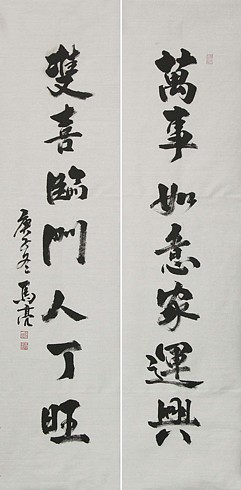 萬事如意家運興
雙喜臨門人丁旺
庚子冬 馬亮